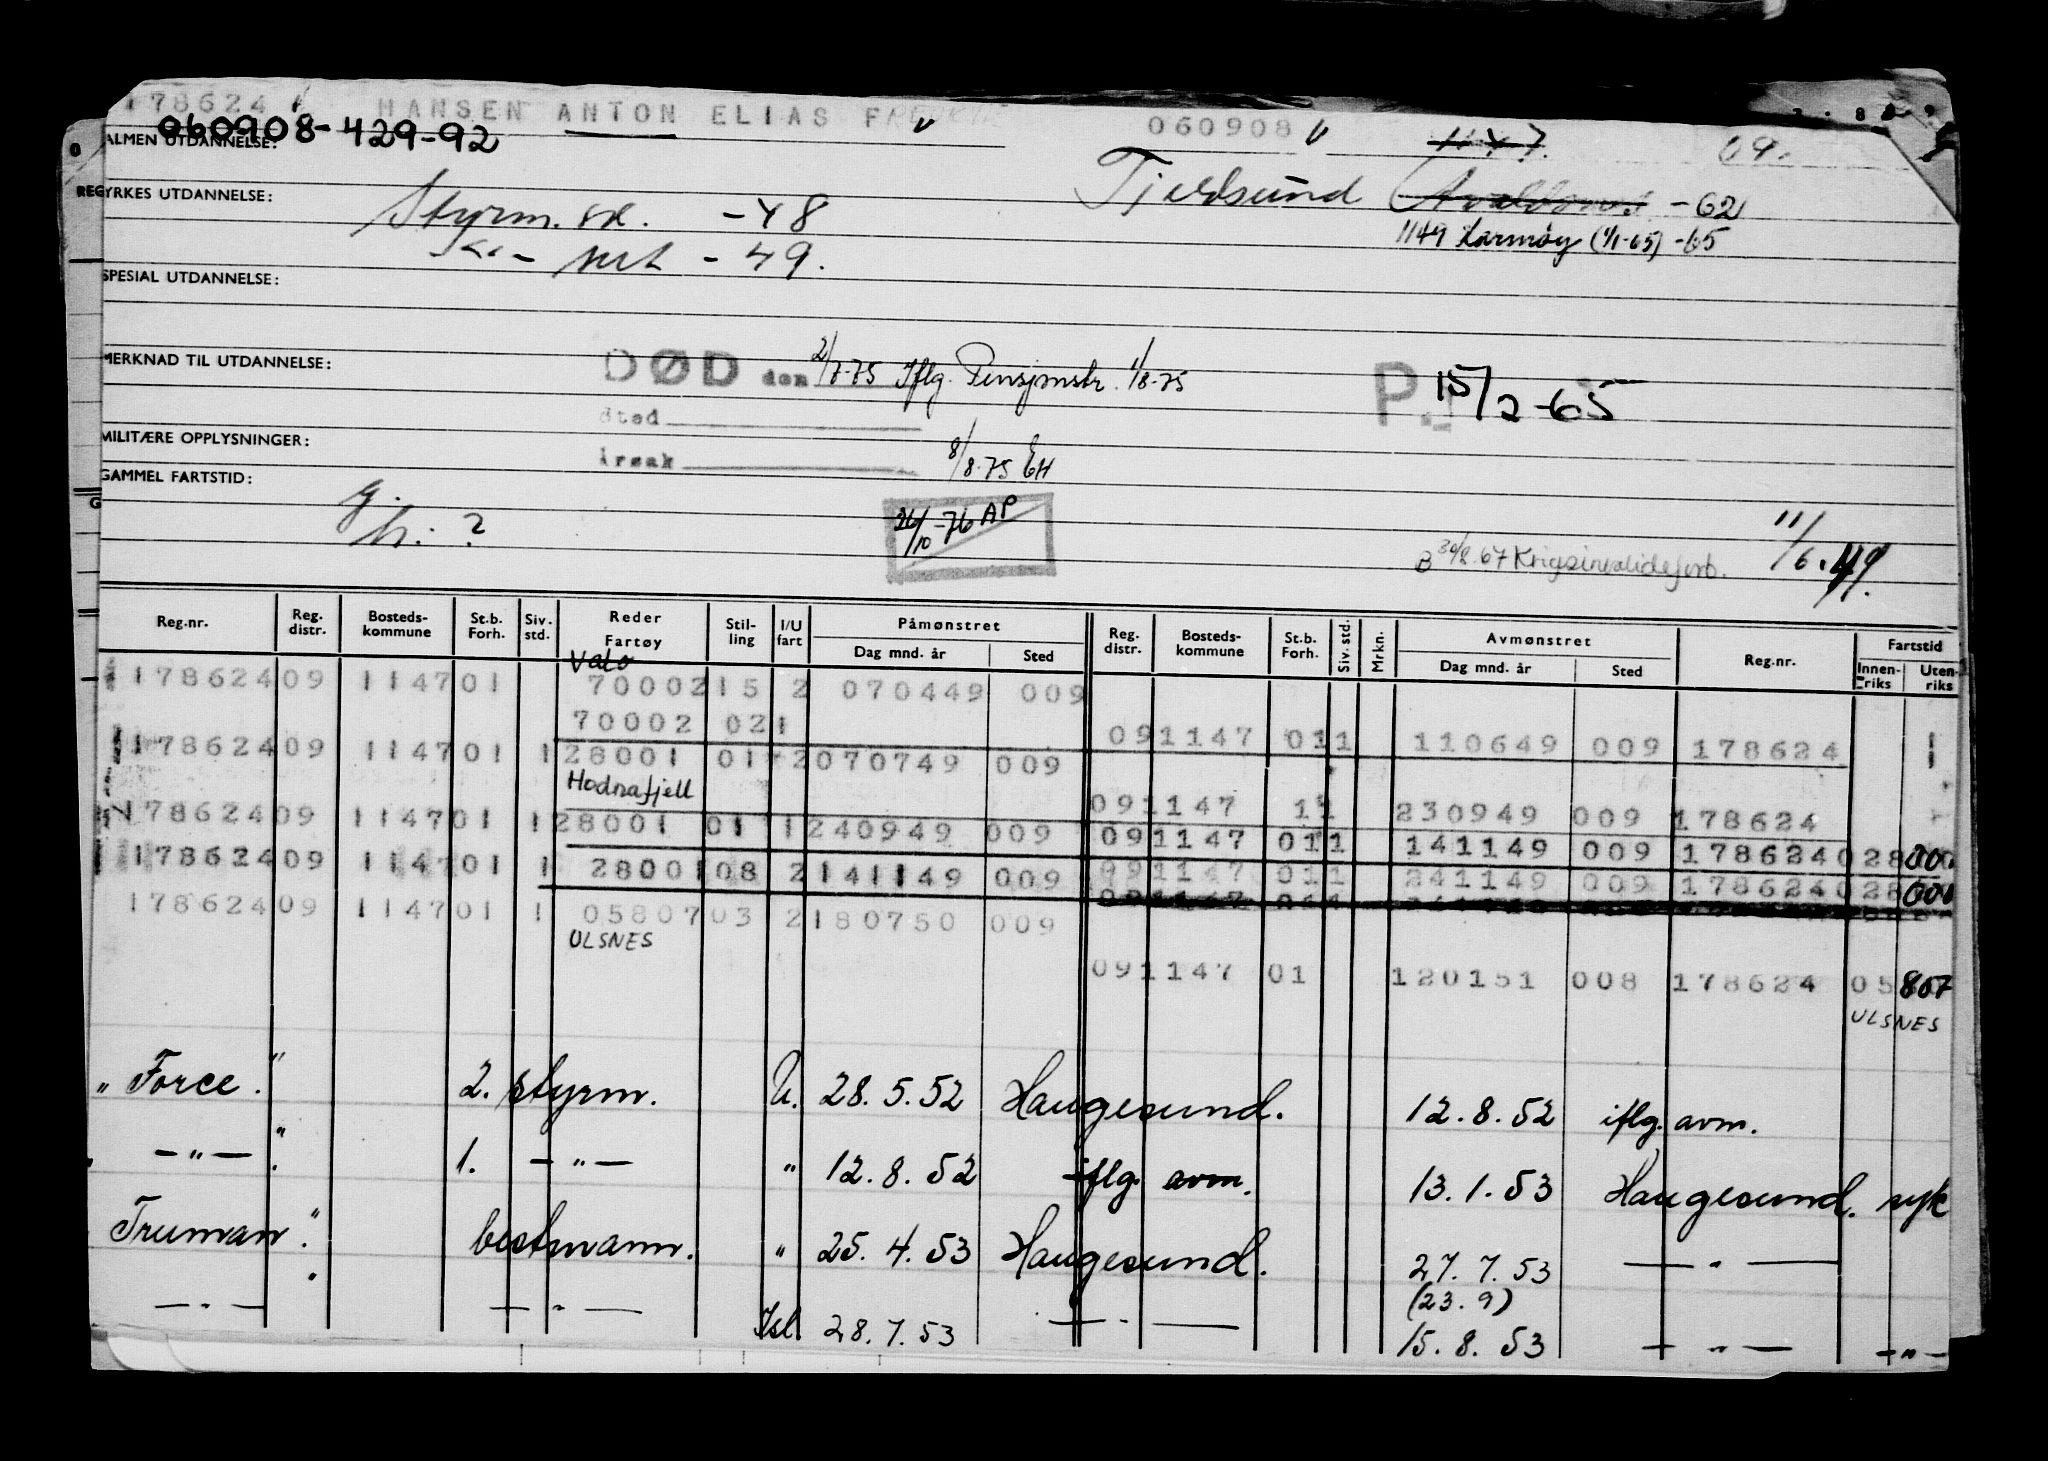 178624 HANSEN ANTON ELIAS 060908 1147 09.
060908-429-92
ALMEN UTDANNELSE:
YRKES UTDANNELSE: Styrm. sk. -48 Tjeldsund Avaldsnes -62
1149 Karmøy (1/1-65) -65
-"- sert -49.
SPESIAL UTDANNELSE:
MERKNAD TIL UTDANNELSE: DØD den 2/7-75 Iflg. Pensjonstr. 1/8-75 P.T 15/2-65
Sted
MILITÆRE OPPLYSNINGER:
Årsak 8/8-75 EH
GAMMEL FARTSTID: g.
h. ? 26/10-76 AP
B 30/8.67 Krigsinvalideforb. 11/6.49.
Reg.nr. Reg. distr. Bosteds-kommune St.b. Forh. Siv. std. Reder Fartøy Stil-ling I/U fart Påmønstret Dag mnd. år Sted Reg. distr. Bosteds-kommune St.b. Forh. Siv. std. Mrkn. Avmønstret Dag mnd. år Sted Reg.nr. Fartstid Innen-riks Uten-riks
Valo
178624 09 1147 01 70002 15 2 070449 009
70002 02 1
09 1147 01 1 110649 009 178624
178624 09 1147 01 1 28001 01 2 070749 009
Hodnafjell
09 1147 1 1 230949 009 178624
178624 09 1147 01 1 28001 01 1 240949 009 09 1147 01 1 141149 009 178624 028001
178624 09 1147 01 1 28001 08 2 141149 009 09 1147 01 1 241149 009 178624 028001
178624 09 1147 01 1 05807 03 2 180750 009
ULSNES
09 1147 01 120151 008 178624 05807
ULSNES
"Force." 2. styrm. U. 28.5.52 Haugesund. 12.8.52 iflg. avm.
-"-" 1. -"- " 12.8.52 iflg. avm. 13.1.53 Haugesund. syk
Truman." bestmann. " 25.4.53 Haugesund. 27.7.53 -"-
(23.9)
-"-" -"- Isl. 28.7.53 -"- 15.8.53 -"- -"-